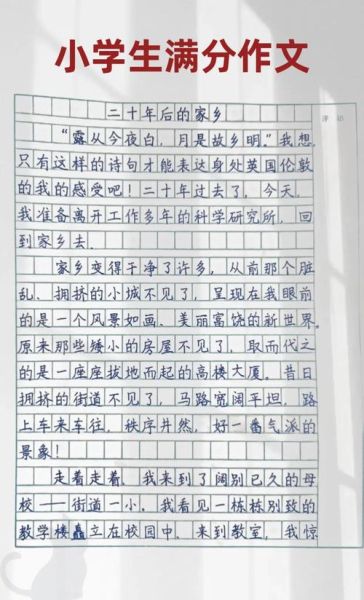 小学生满分作文
二十年后的家乡
“露从今夜白，月是故乡明。”我想，
只有这样的诗句才能表达身处英国伦敦
的我的感受吧！二十年过去了，今天，
我准备离开工作多年的科学研究所，回
到家乡去。
家乡变得干净了许多，从前那个脏
乱、拥挤的小城不见了，呈现在我眼前
的是一个风景如画、美丽富饶的新世界。
原来那些矮小的房屋不见了，取而代之
的是一座座拔地而起的高楼大厦。昔日
拥挤的街道不见了，马路宽阔平坦，路
上车来车往，秩序井然，好一番气派的
景象！
走着走着，我来到了阔别已久的母
校——街道一小。我看见一栋栋别致的
教学楼矗立在校园中。来到教室，我惊